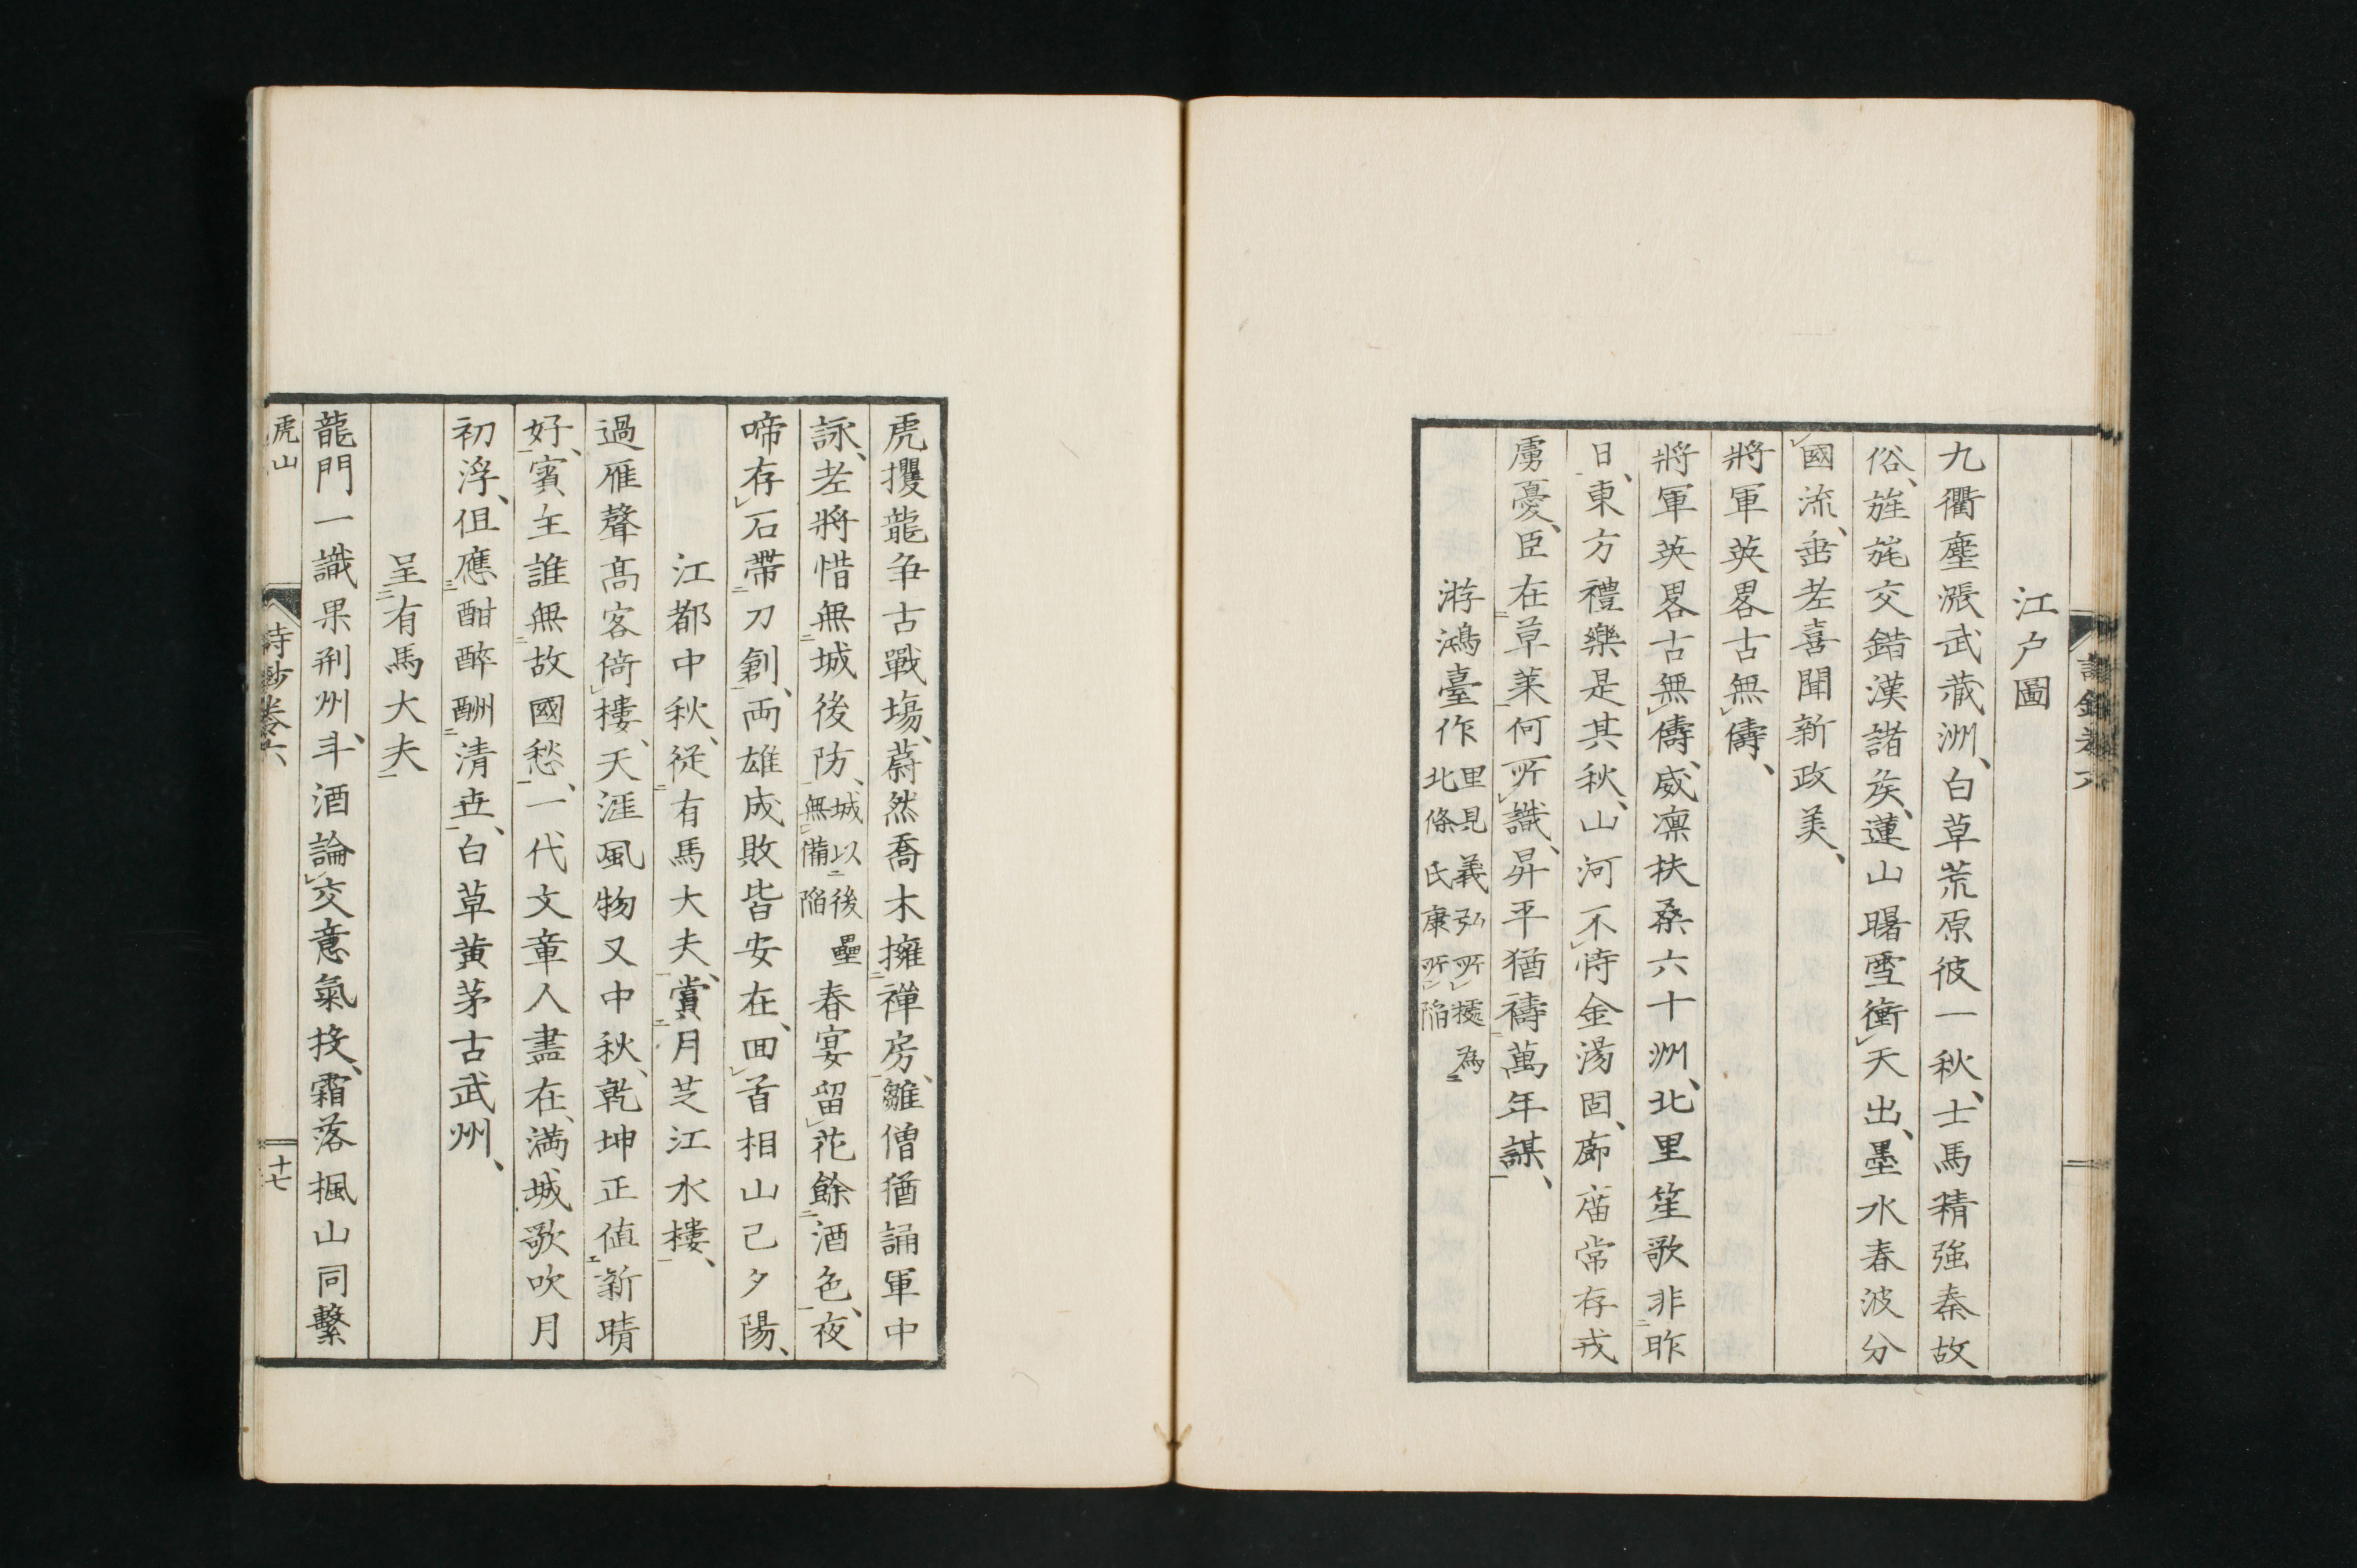 江戸圖
九衢塵漲武藏洲、白草荒原彼一秋、士馬精強秦故
俗、旌旄交錯漢諸矦、蓮山曙雪衝天出、墨水春波分
國流、垂老喜聞新政美、
將軍英畧古無儔、
將軍英畧古無儔、威凛扶桑六十洲、北里笙歌非昨
日、東方禮樂是其秋、山河不恃金湯固、廊庿常存戎
虜憂、臣在草萊何所識、昇平猶禱萬年謀、
游鴻臺作 里見義弘所據為北條氏康所陷
虎攫龍争古戰塲、蔚然喬木擁禅房、雛僧猶誦軍中
詠、老將惜無城後防、城以後壘無備陷 春宴留花餘酒色、夜
啼存石帶刀創、両雄成敗皆安在、回首相山已夕陽、
江都中秋、從有馬大夫、賞月芝江水樓、
過雁聲髙客倚樓、天涯風物又中秋、乾坤正値新晴
好、賓主誰無故國愁、一代文章人盡在、満城歌吹月
初浮、但應酣醉酬清世、白草黄茅古武州、
呈有馬大夫
龍門一識果荊州、斗酒論交意氣投、霜落楓山同繫
虎山
詩鈔卷六
十七